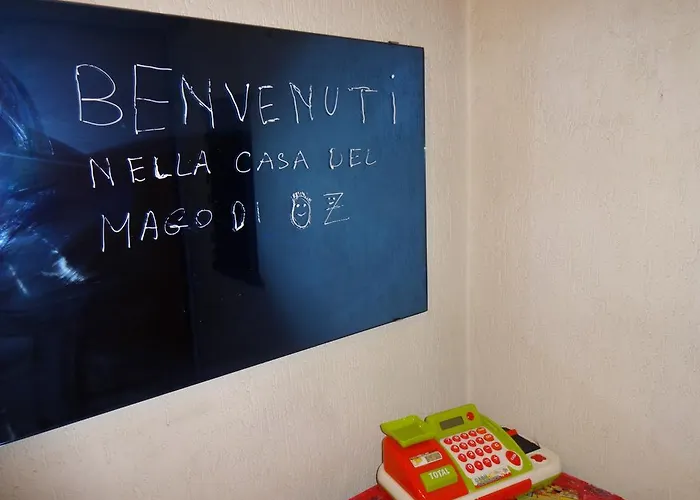 BENVENUTi
NELLA CASA DEL
MAGO DI OZ
TOTAL